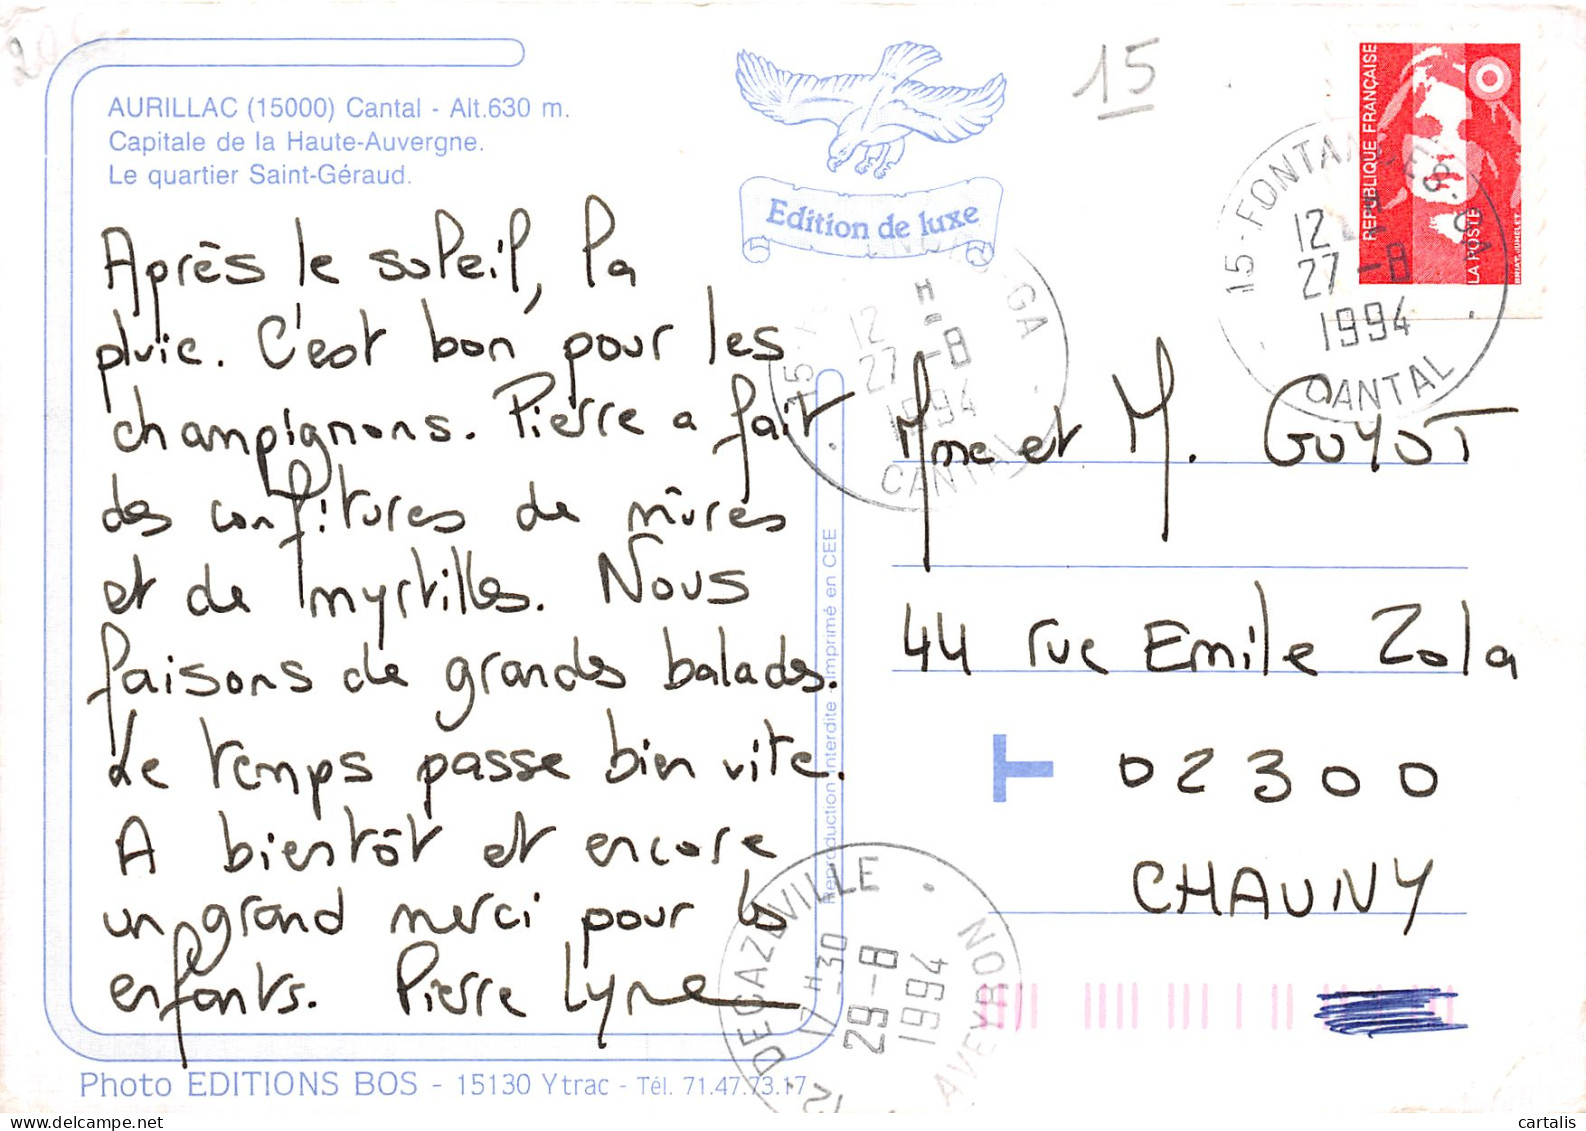 AURILLAC (15000) Cantal - Alt.630 m.
Capitale de la Haute-Auvergne.
Le quartier Saint-Géraud.
Edition de luxe
15
REPUBLIQUE FRANÇAISE
LA POSTE
BRIAT-JUMELET
15-FONTANGES
12 H
27-8
1994
CANTAL
12 H
27-8
1994
CANTAL
Après le soleil, la
pluie. C'est bon pour les
champignons. Pierre a fait
des confitures de mûres
et de myrtilles. Nous
faisons de grandes balades.
Le temps passe bien vite.
A bientôt et encore
un grand merci pour les
enfants. Pierre Lyne
Mme et M. GUYOT
44 rue Emile Zola
T
02300
CHAUNY
Reproduction interdite - Imprimé en CEE
12 - DECAZEVILLE
17H30
29-8
1994
AVEYRON
Photo EDITIONS BOS - 15130 Ytrac - Tél. 71.47.73.17
cartalis